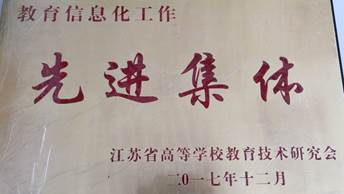 教育信息化工作
先进集体
江苏省高等学校教育技术研究会
二〇一七年十二月